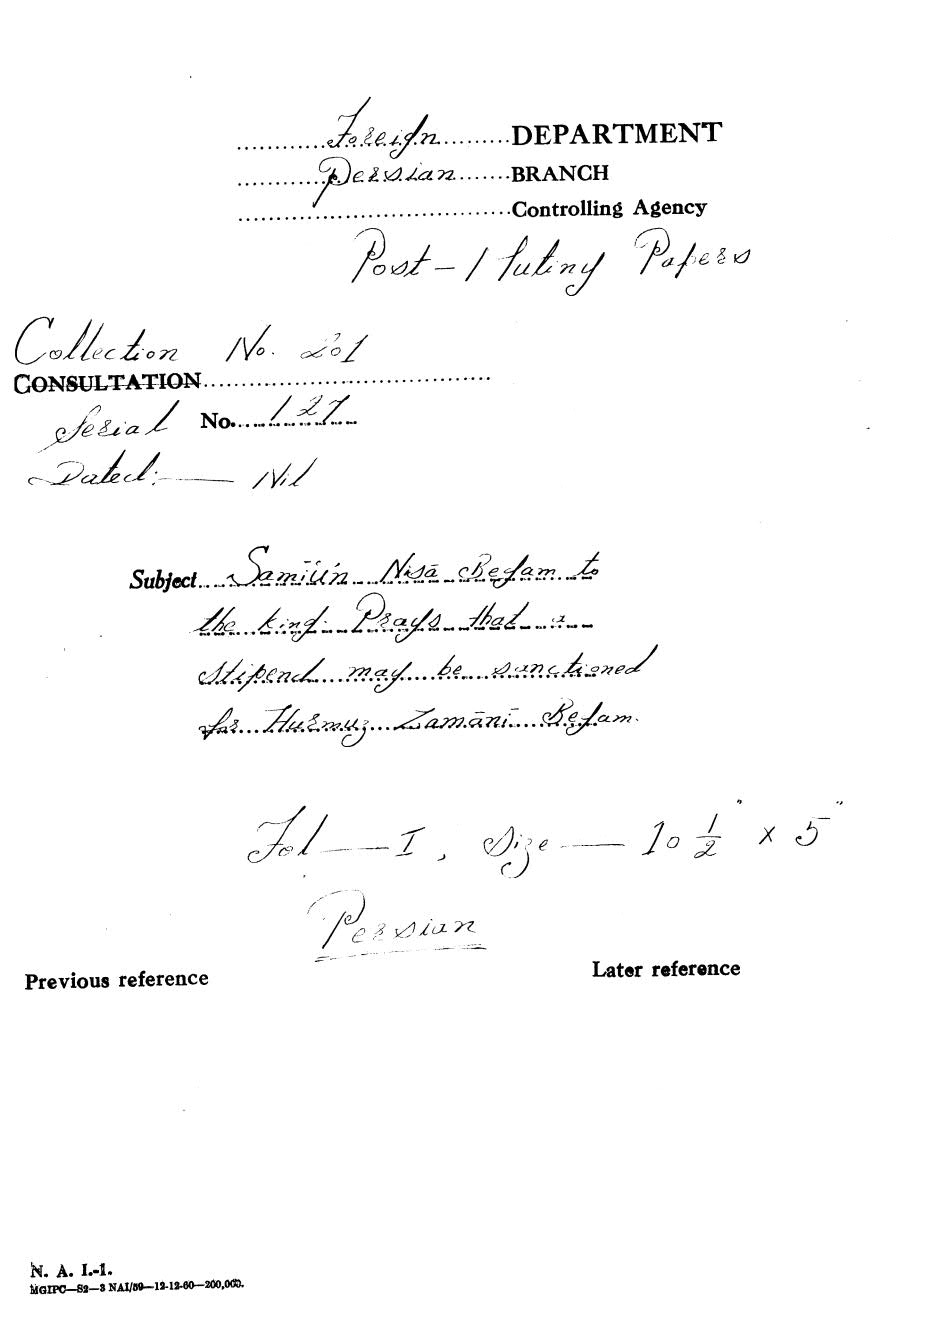 Foreign DEPARTMENT
Persian BRANCH
Controlling Agency
Post-Mutiny Papers
Collection No. 201
CONSULTATION
Serial No. 127
Dated:— Nil
Subject Samiún Nisā Begam to
the king. Prays that a
stipend may be sanctioned
for Hurmuz Zamānī Begam.
Fol — I, Size — 10 1/2" x 5"
Persian
Previous reference
Later reference
N. A. I.-1.
MGIPC—S2—3 NAI/59—12-12-60—200,000.